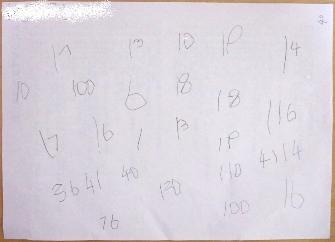 17 13 10 19 14
10 100 6 18 18 116
17 16 1 13 19 14
36 41 40 130 110 41 16
76 100